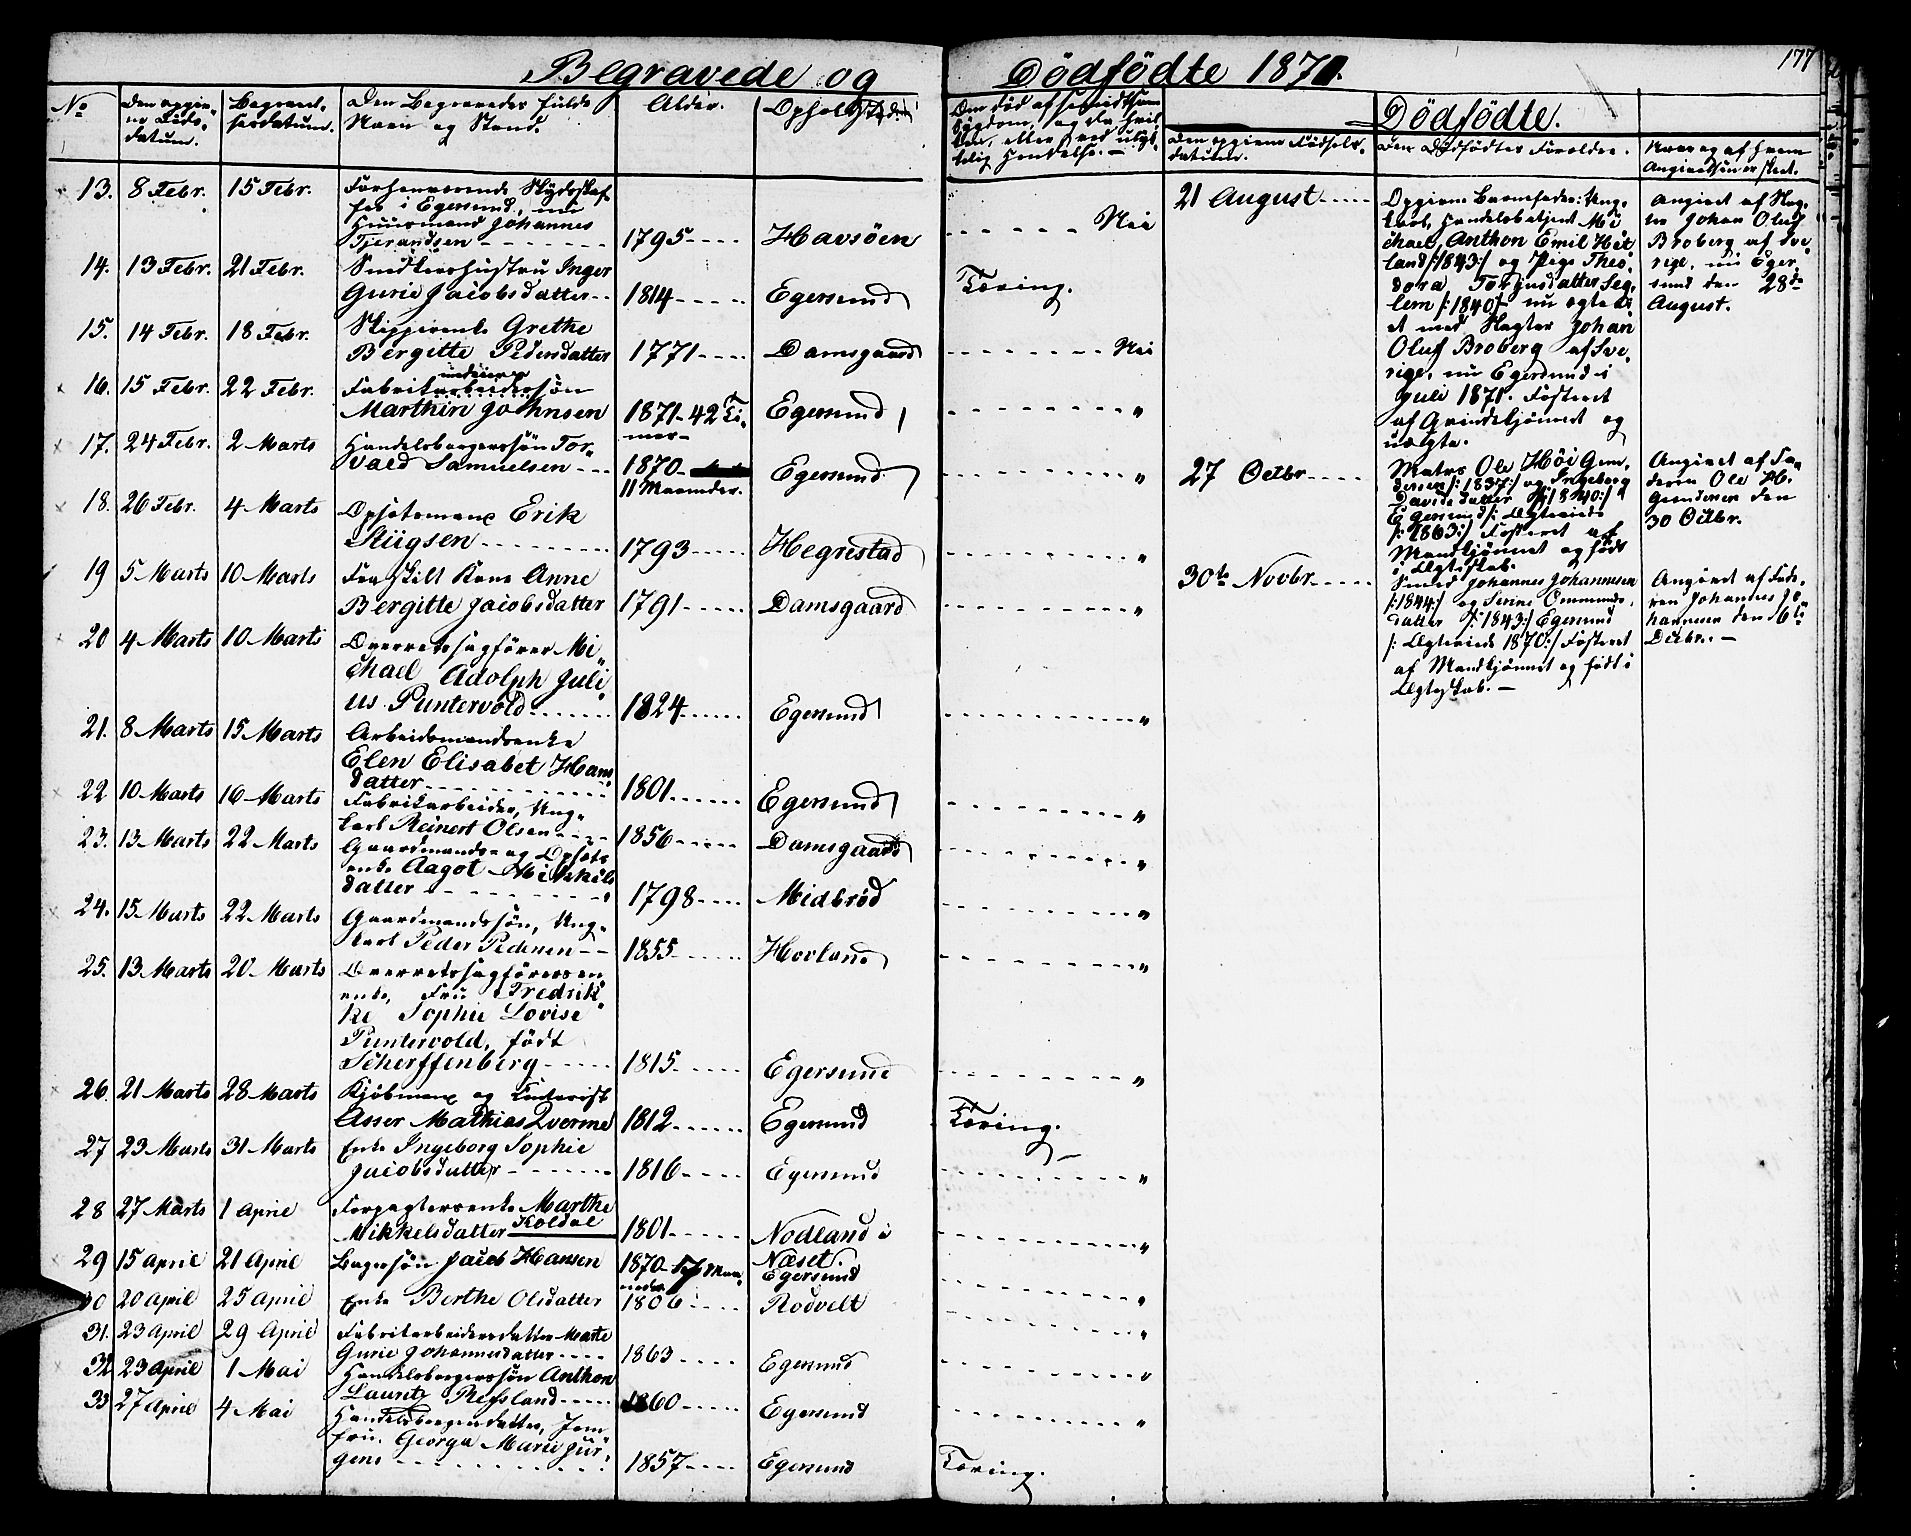 177
Begravede og Dödfödte 1871.
No
Den opgivne Döds-datum.
Begravelsesdatum.
Den Begravedes fulde Navn og Stand.
Alder.
Opholdssted
Om död af smitsom Sygdom, og da hvilken, eller ved ulykkelig Hendelse. —
Dödfödte.
Den opgivne Födselsdatum.
Den Dödfödtes Forældre.
Naar og af hvem Angivelsen er skeet.
13. 8 Febr. 15 Febr. Forhenværende Skydsskaffer i Egersund, nu
Huusmand Johannes
Tjerandsen 1795 Havsöen Nei
14. 13 Febr. 21 Febr. Snedkershustru Inger
Gurie Jacobsdatter 1814 Egersund Tæring.
15. 14 Febr. 18 Febr. Skipperenke Grethe
Bergitte Pedersdatter 1771 Damsgaard Nei
16. 15 Febr. 22 Febr. Fabrikarbeidersön
Marthin Johnsen 1871 - 42 Timer Egersund "
17. 24 Febr. 2 Marts Handelsborgerssön Torvald Samuelsen 1870 11 Maaneder. Egersund "
18. 26 Febr. 4 Marts Opsitsmand Erik
Stiigsen 1793 Hegrestad "
19 5 Marts 10 Marts Fraskilt Kone Anne
Bergitte Jacobsdatter 1791 Damsgaard "
20 4 Marts 10 Marts Overretssagförer Michael Adolph Julius Puntervold 1824 Egersund "
21. 8 Marts 15 Marts Arbeidsmandsenke
Elen Elisabet Hansdatter 1801 Egersund "
22 10 Marts 16 Marts Fabrikarbeider, Ungkarl Reinert Olsen 1856 Damsgaard "
23. 13 Marts 22 Marts Gaardmands- og Opsitsenke Aagot Mikkelsdatter 1798 Midbröd "
24. 15 Marts 22 Marts Gaardmandssön, Ungkarl Peder Pedersen 1855 Hovland "
25. 13 Marts 20 Marts Overretssagförersenke, Fru Fredrikke Sophie Lovise
Puntervold, födt
Scherffenberg 1815 Egersund "
26. 21 Marts 28 Marts Kjöbmand og
Asser Mathias Qverme 1812 Egersund Tæring.
27 23 Marts 31 Marts Enke Ingeborg Sophie
Jacobsdatter 1816 Egersund "
28 27 Marts 1 April Forpagterenke Marthe
Mikkelsdatter Koldal 1801 Nodland i Næset. "
29 15 April 21 April Bagersön Jacob Hansen 1870 Egersund "
30 20 April 25 April Enke Berthe Olsdatter 1806 Rodvelt "
31. 23 April 29 April Fabrikarbeidersdatter Marte
Gurie Johannesdatter 1863 Egersund "
32 23 April 1 Mai Handelsborgerssön Anthon
Lauritz Refsland 1860 Egersund "
33 27 April 4 Mai Handelsborgerdatter, Jomfru Georga Marie Jürgens 1857 Egersund Tæring.
21 August
Opgiven Barnefader: Ungkarl, Handelsbetjent Michael Anthon Emil Hetland /:1843:/ og Pige Theodora Torjusdatter Seglem /:1840:/ nu ægteviet med Slagter Johan
Oluf Broberg af Sverige, nu Egersund i
Juli 1871. Fosteret
af Qvindekjönnet og
uægte.
Angivet af Slagter Johan Oluf
Broberg af Sverige, nu Egersund den 28de
August.
27 Octbr
Matros Ole Höi Gundersen /:1837:/ og Ingeborg
Davidsdatter /:1840:/
Egersund /: Ægteviede
/:1863:/ Fosteret af
Mandkjönnet og födt
i Ægteskab.
Angivet af Faderen Ole H.
Gundersen den
30 Octbr.
30te Novbr.
Smed Johannes Johannesen
/:1844:/ og Serine Ommundsdatter /:1843:/ Egersund
/: Ægteviede 1870:/ Fosteret
af Mandkjönnet og födt i
Ægteskab. —
Angivet af Faderen Johannes Johannesen den 6te
Decbr. —